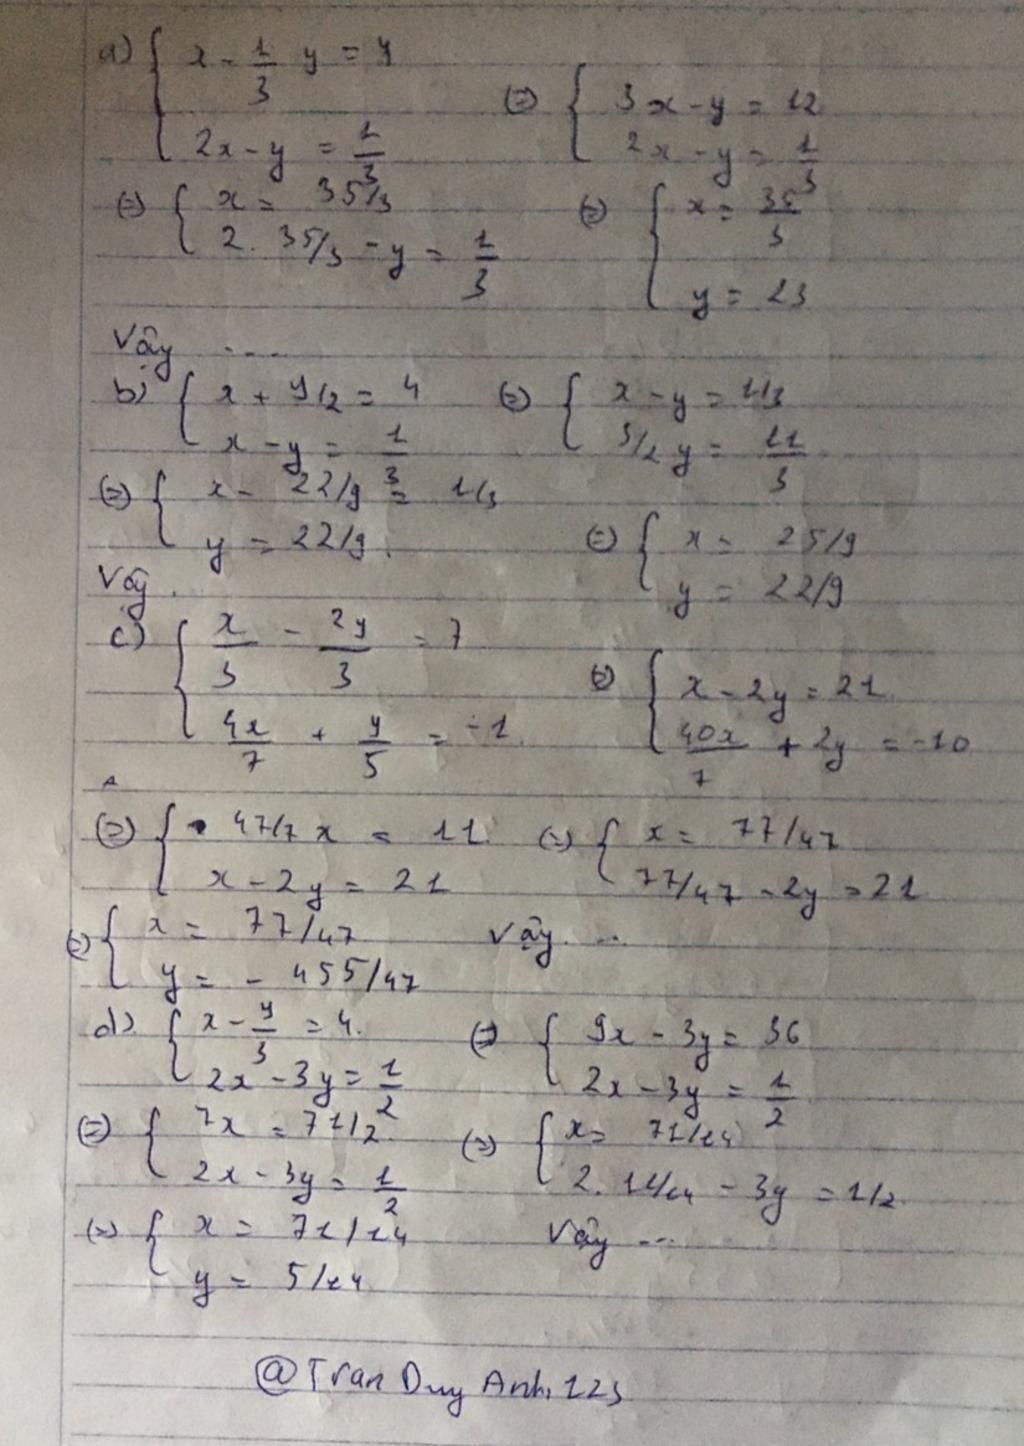 a) { x - 1/3 y = 4
2x - y = 1/3
(=) { 3x - y = 12
2x - y = 1/3
(=) { x = 35/3
2. 35/3 - y = 1/3
(=) { x = 35/3
y = 23
Vậy ....
b) { x + y/2 = 4
x - y = 1/3
(=) { x - y = 1/3
3/2 y = 11/3
(=) { x - 22/9 = 1/3
y = 22/9.
(=) { x = 25/9
y = 22/9
Vậy.
c) { x/3 - 2y/3 = 7
4x/7 + y/5 = -1
(=) { x - 2y = 21
40x/7 + 2y = -10
(=) { 47/7 x = 11
x - 2y = 21
(=) { x = 77/47
77/47 - 2y = 21
(=) { x = 77/47
y = - 455/47
Vậy ...
d) { x - y/3 = 4.
2x - 3y = 1/2
(=) { 9x - 3y = 36
2x - 3y = 1/2
(=) { 7x = 71/2
2x - 3y = 1/2
(=) { x = 71/14
2. 71/14 - 3y = 1/2.
(=) { x = 71/14
y = 45/14
Vậy ...
@Tran Duy Anh 123